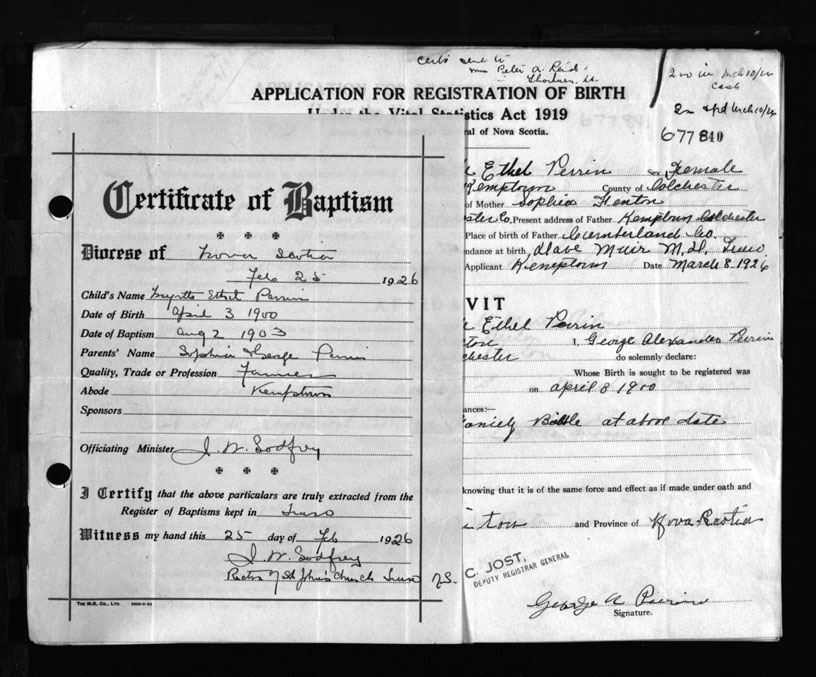 certs sent to
Mrs Peter A. Reid
Thorburn, N.S.
2 00 in Mch 10/26
cash
APPLICATION FOR REGISTRATION OF BIRTH
Under the Vital Statistics Act 1919
ral of Nova Scotia.
677840
Certificate of Baptism
Diocese of Nova Scotia
Feb 25 1926
Child's Name Myrtle Ethel Perrin
Date of Birth April 3 1900
Date of Baptism Aug 2 1903
Parents' Name Sophia & George Perrin
Quality, Trade or Profession Farmer
Abode Kemptown
Sponsors
Officiating Minister J. W. Godfrey
I Certify that the above particulars are truly extracted from the
Register of Baptisms kept in Truro
Witness my hand this 25 day of Feb 1926
J. W. Godfrey
Rector of St John's Church Truro N.S.
THE M.B. CO., LTD.
Ethel Perrin Sex Female
Kemptown County of Colchester
of Mother Sophia Fenton
ster Co. Present address of Father Kemptown Colchester
Place of birth of Father Cumberland Co.
ndance at birth, Dave Muir M.D. Truro
Applicant Kemptown Date March 8. 1926
VIT
Ethel Perrin
ton I, George Alexander Perrin
chester do solemnly declare:
Whose Birth is sought to be registered was
on April 3 1900
ances:—
at above date
knowing that it is of the same force and effect as if made under oath and
ton and Province of Nova Scotia
C. JOST,
DEPUTY REGISTRAR GENERAL
George A Perrin
Signature.